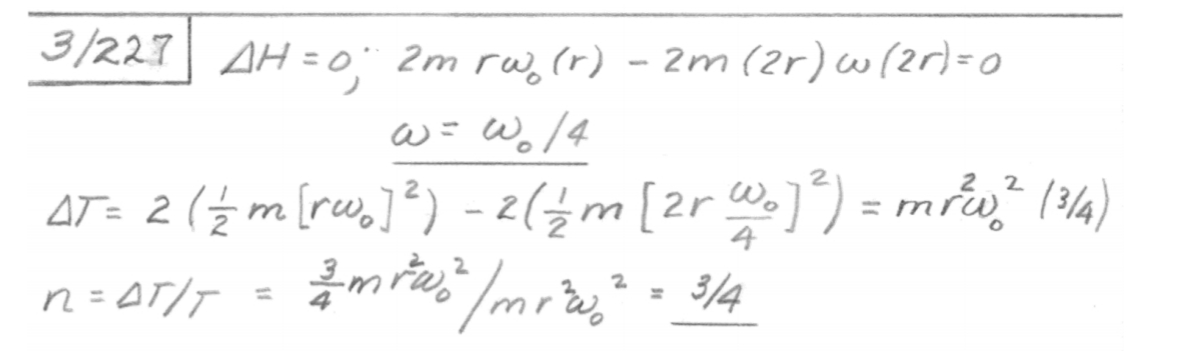 3/227 ΔH = 0; 2m rω₀(r) - 2m(2r)ω(2r) = 0
ω = ω₀/4
ΔT = 2(½m[rω₀]²) - 2(½m[2r ω₀/4]²) = mr²ω₀²(3/4)
n = ΔT/T = ¾mr²ω₀²/mr²ω₀² = 3/4